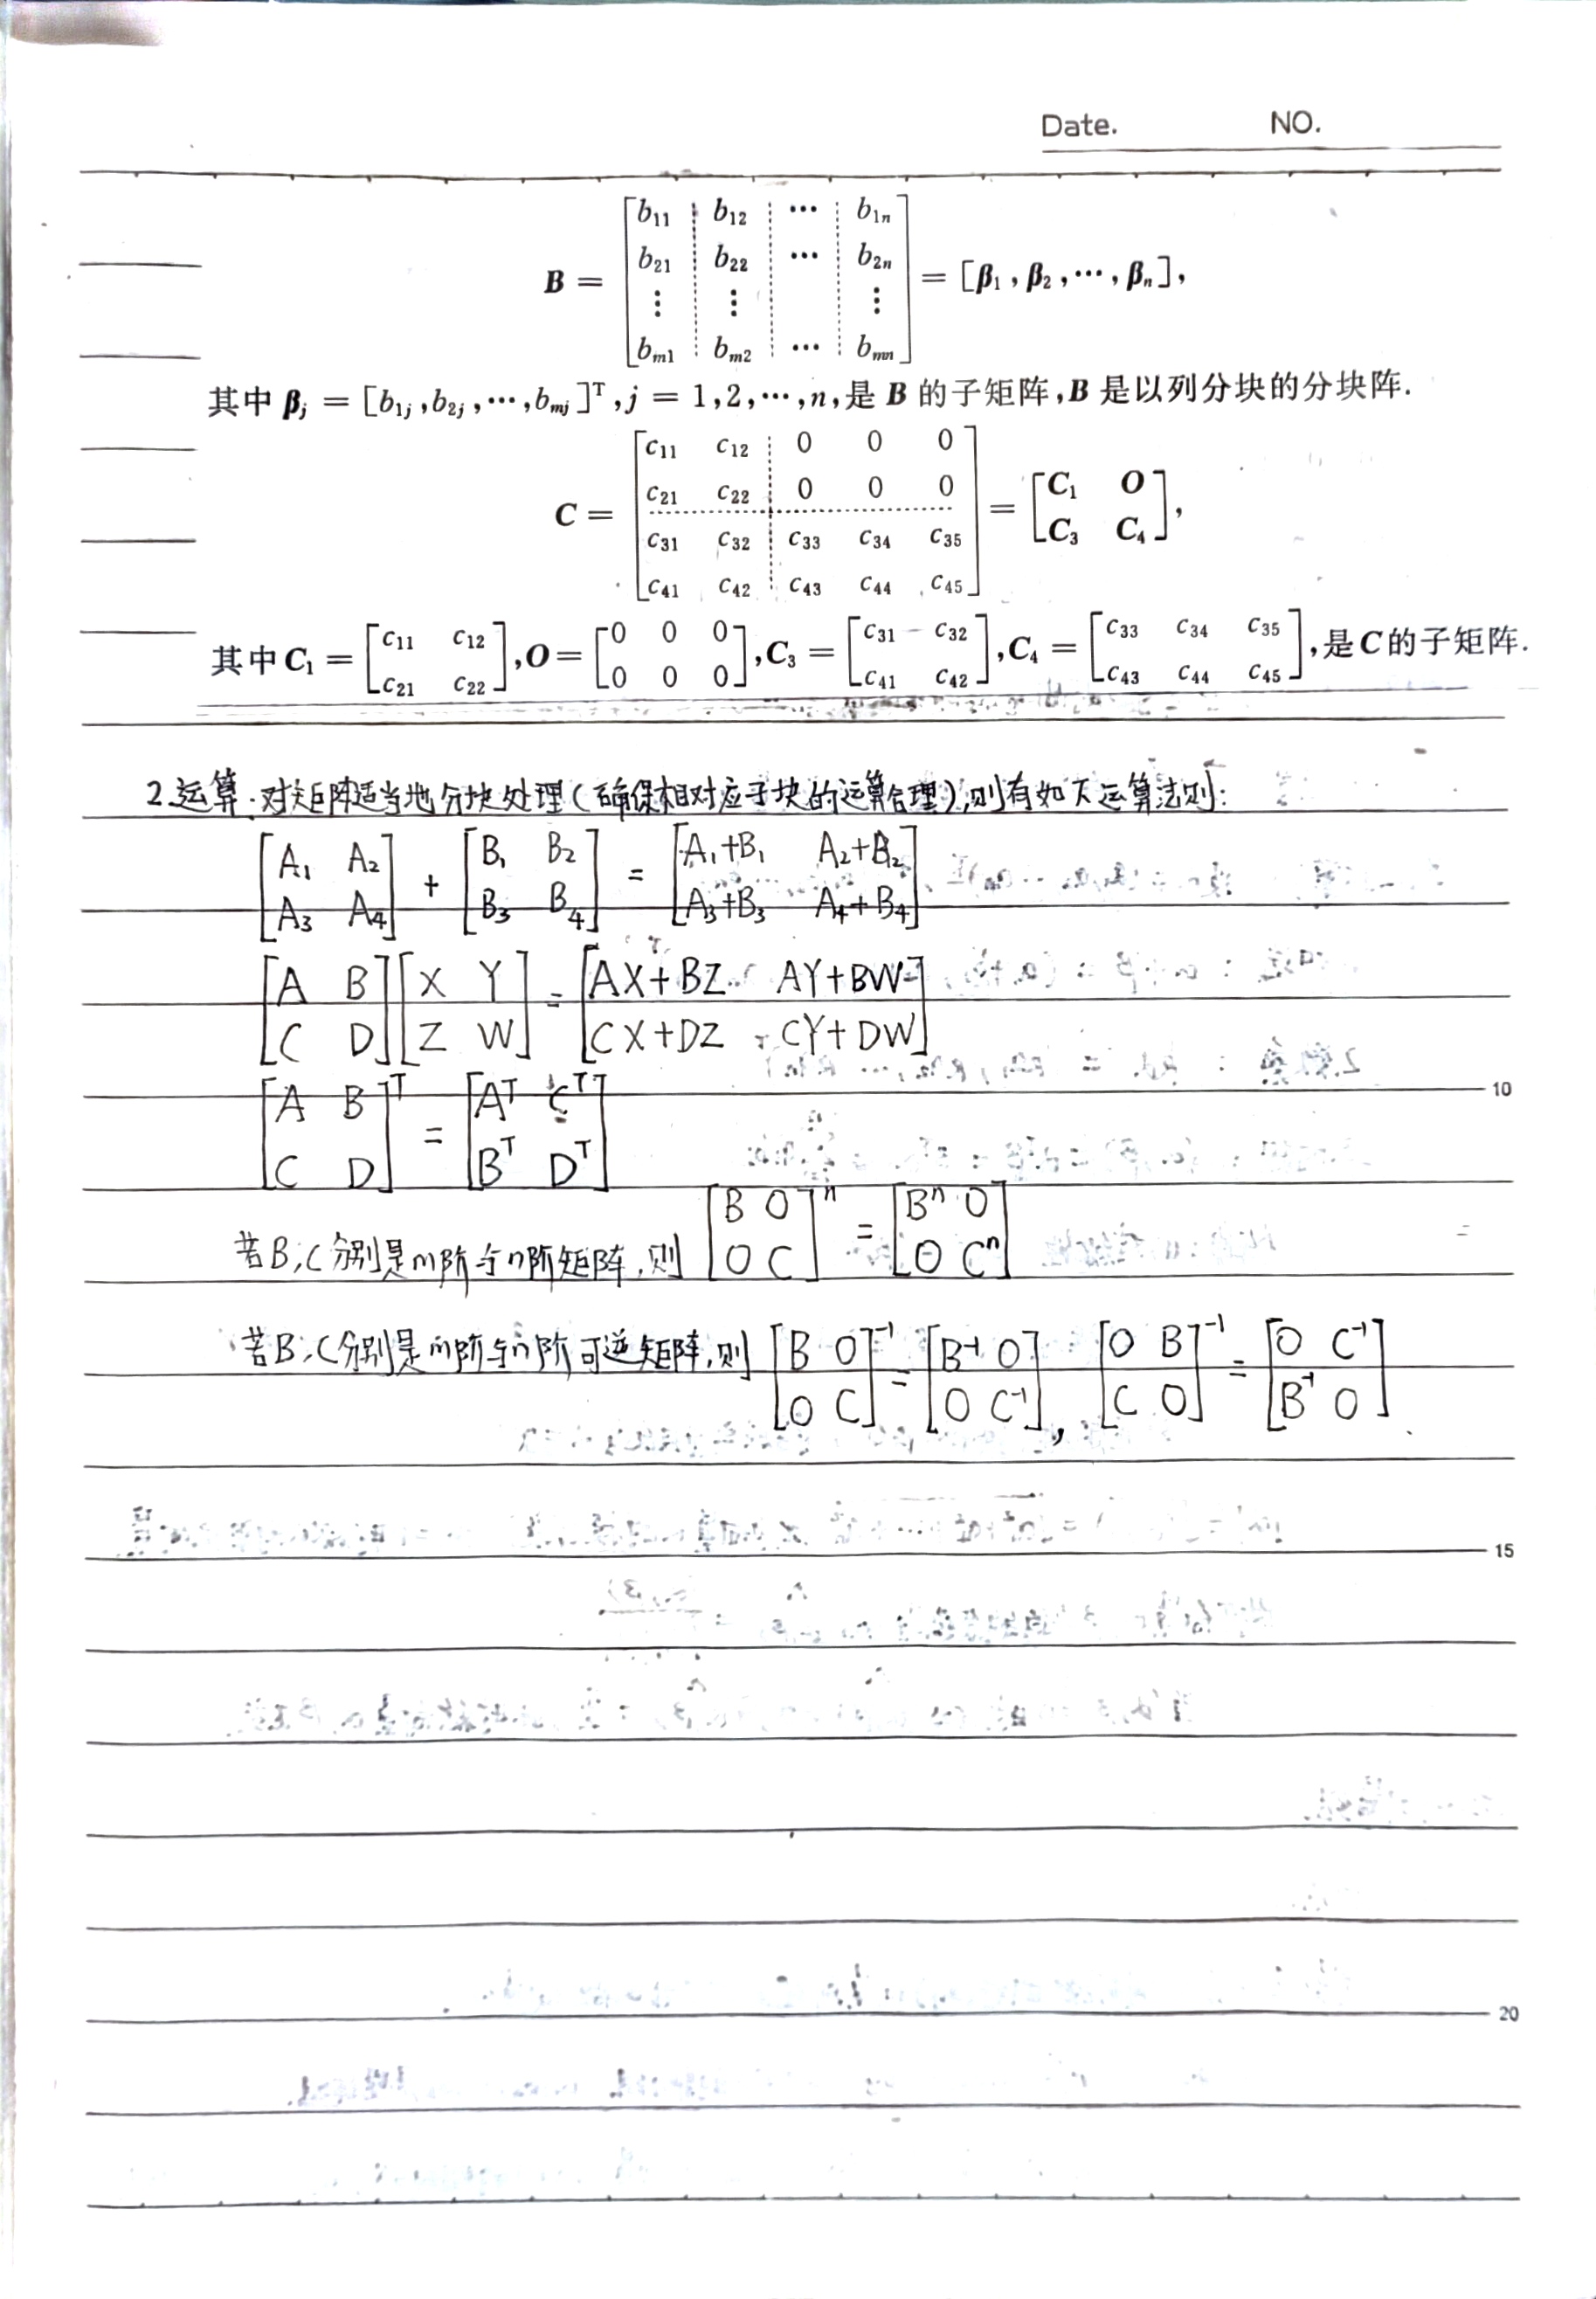 Date. NO.
B = [b₁₁ b₁₂ ⋯ b₁ₙ
b₂₁ b₂₂ ⋯ b₂ₙ
⋮ ⋮ ⋮
bₘ₁ bₘ₂ ⋯ bₘₙ] = [β₁,β₂,⋯,βₙ],
其中 βⱼ = [b₁ⱼ,b₂ⱼ,⋯,bₘⱼ]ᵀ,j = 1,2,⋯,n,是 B 的子矩阵,B 是以列分块的分块阵.
C = [c₁₁ c₁₂ 0 0 0
c₂₁ c₂₂ 0 0 0
c₃₁ c₃₂ c₃₃ c₃₄ c₃₅
c₄₁ c₄₂ c₄₃ c₄₄ c₄₅] = [C₁ O
C₃ C₄],
其中 C₁ = [c₁₁ c₁₂
c₂₁ c₂₂], O = [0 0 0
0 0 0], C₃ = [c₃₁ c₃₂
c₄₁ c₄₂], C₄ = [c₃₃ c₃₄ c₃₅
c₄₃ c₄₄ c₄₅],是 C 的子矩阵.
2.运算:对矩阵适当地分块处理(确保相对应子块的运算合理),则有如下运算法则:
[A₁ A₂
A₃ A₄] + [B₁ B₂
B₃ B₄] = [A₁+B₁ A₂+B₂
A₃+B₃ A₄+B₄]
[A B
C D][X Y
Z W] = [AX+BZ AY+BW
CX+DZ CY+DW]
[A B
C D]ᵀ = [Aᵀ Cᵀ
Bᵀ Dᵀ]
若B,C分别是m阶与n阶矩阵,则 [B O
O C]ⁿ = [Bⁿ O
O Cⁿ]
若B,C分别是m阶与n阶可逆矩阵,则 [B O
O C]⁻¹ = [B⁻¹ O
O C⁻¹], [O B
C O]⁻¹ = [O C⁻¹
B⁻¹ O].
10
15
20